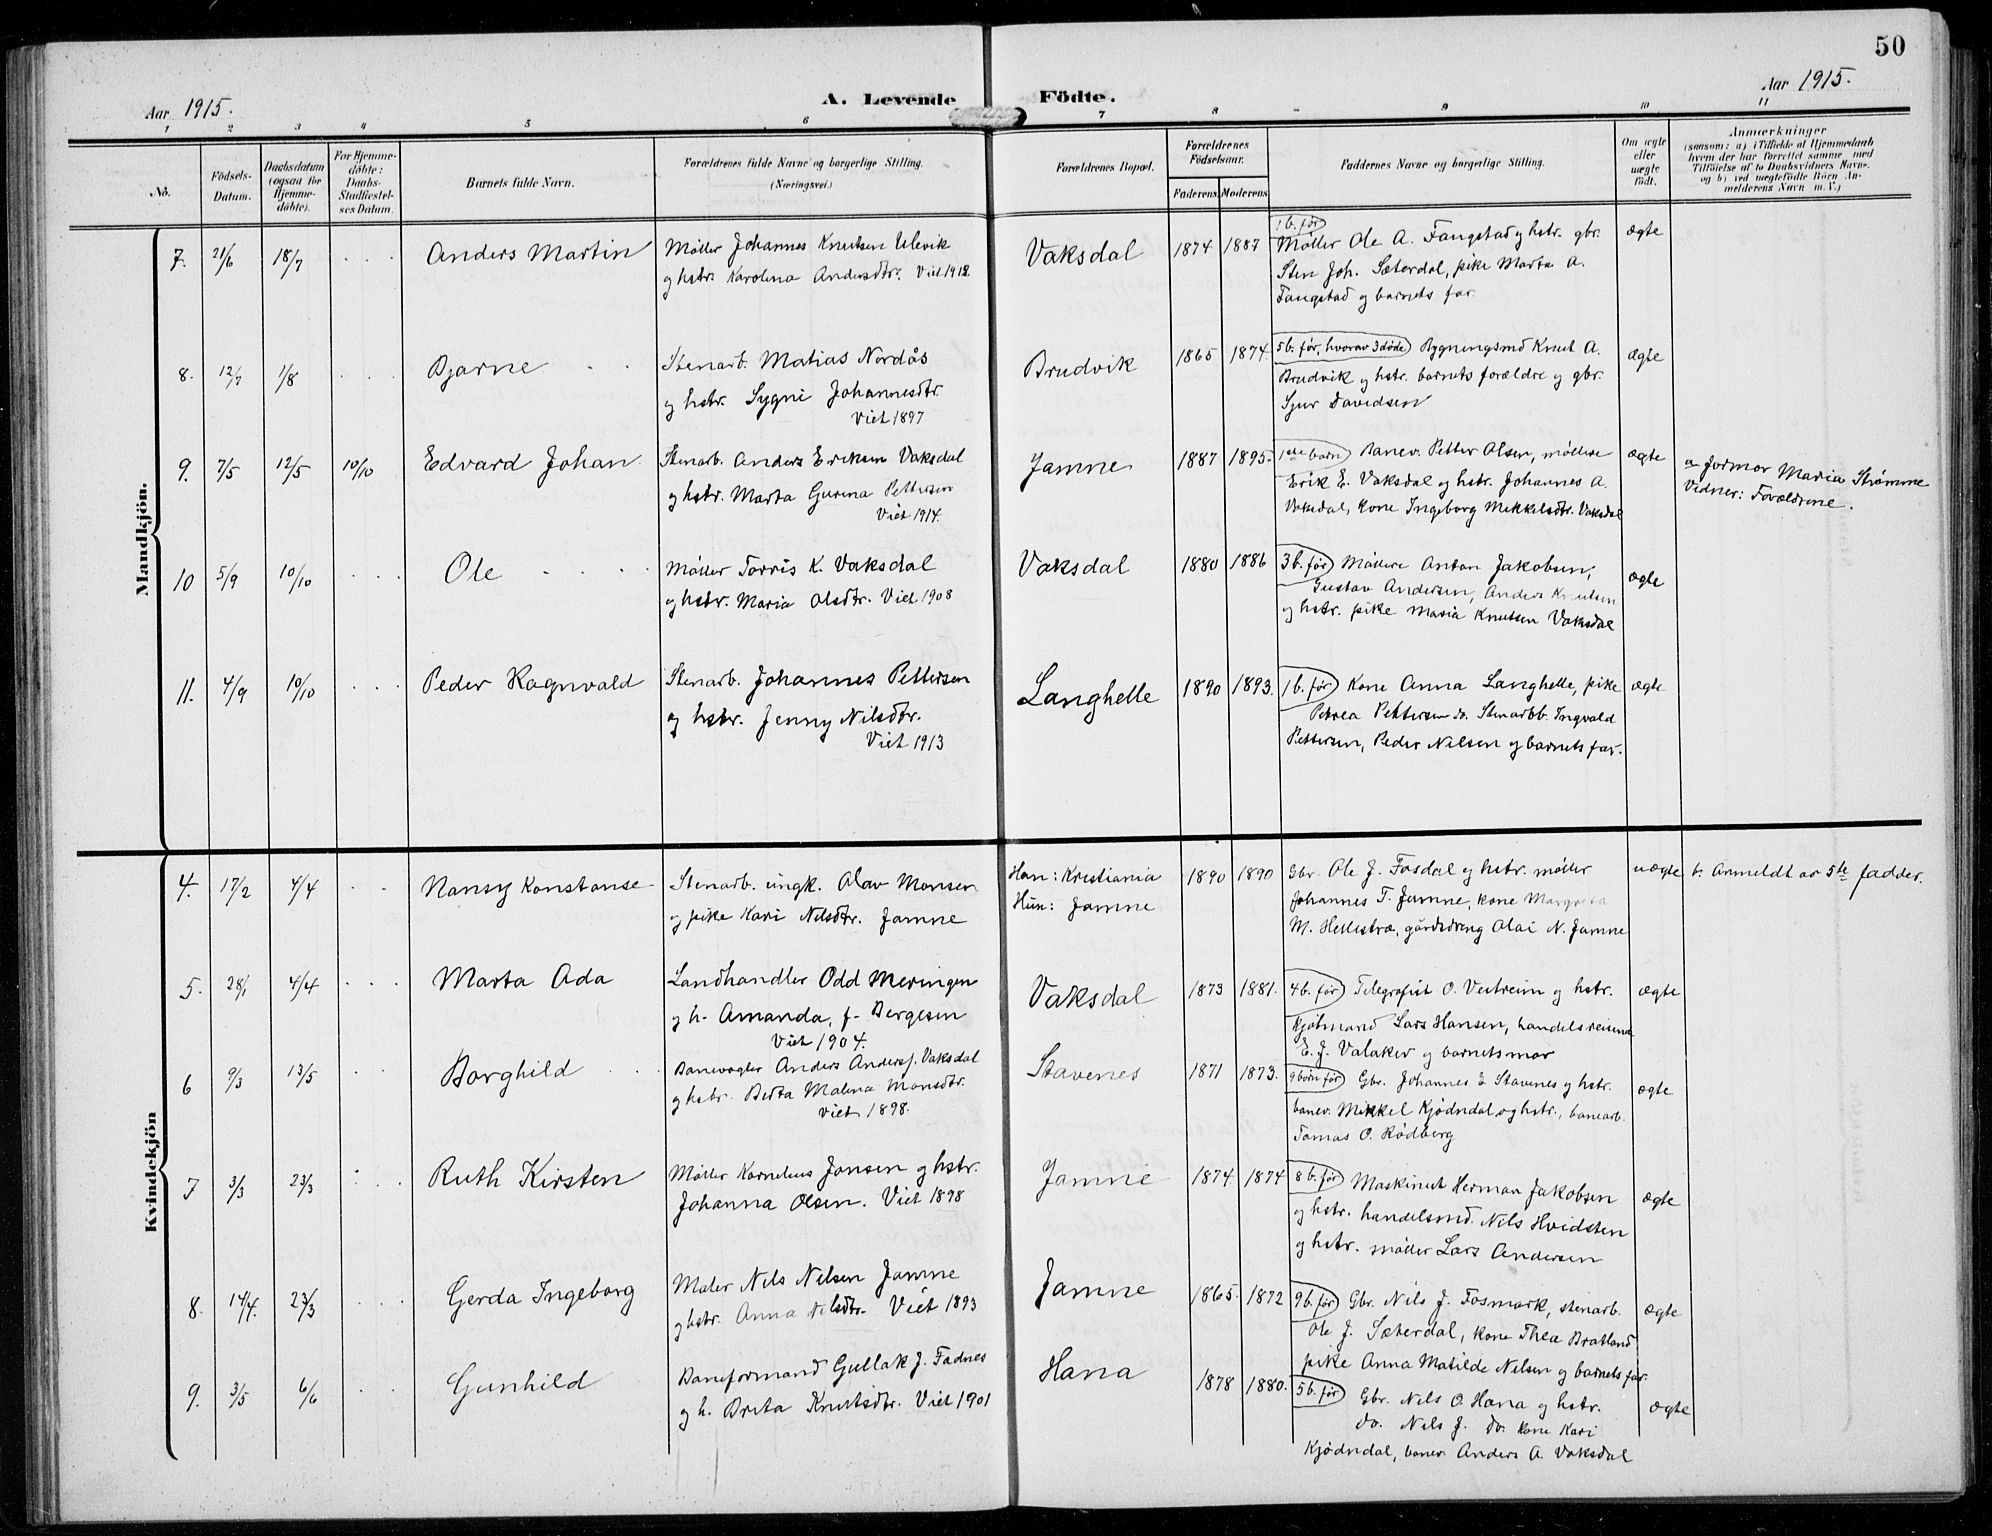 50
Aar 1915.
A. Levende Födte.
Aar 1915.
1 2 3 4 5 6 7 8 9 10 11
No.
Födsels-Datum.
Daabsdatum (ogsaa for Hjemme-döbte).
For Hjemme-döbte: Daabs-Stadfæstel-ses Datum.
Barnets fulde Navn.
Forældrenes fulde Navne og borgerlige Stilling.
(Næringsvei.)
Forældrenes Bopæl.
Forældrenes Födselsaar.
Faderens. Moderens.
Faddernes Navne og borgerlige Stilling.
Om ægte eller uægte födt.
Anmærkninger
(saasom: a) i Tilfælde af Hjemmedaab hvem der har forrettet samme, med Tilföielse af to Daabsvidners Navne, og b) ved uægtefödte Börn An-melderens Navn m. V.)
Mandkjön.
7. 21/6 18/7 . . . Anders Martin Møller Johannes Knutsen Ulevik Vaksdal 1874 1887 1 b. før Møller Ole A. Fangstad og hstr. gbr. ægte
og hstr. Karolina Andersdtr. Viet 1912 Sten Joh. Sæterdal, pike Marta A.
Fangstad og barnets far.
8. 12/7 1/8 . . . Bjarne Stenarb. Matias Nordås Brudvik 1865 1874. 5 b. før, hvorav 3 døde Bygningsmd Knut A. ægte
og hstr. Sygni Johannesdtr. Brudvik og hstr. barnets forældre og gbr.
Viet 1897 Sjur Davidsen
9. 7/5 12/5 10/10 Edvard Johan Stenarb. Anders Eriksen Vaksdal Jamne 1887 1895. 1ste barn Banev. Petter Olsen, møllere ægte a. formor Maria Strømme
og hstr. Marta Gurina Pettersen Erik E. Vaksdal og hstr. Johannes A. Vidner: Forældrene.
Viet 1914. Vaksdal, kone Ingeborg Mikkelsdtr. Vaksdal
10 5/9 10/10 . . . Ole Møller Torris K. Vaksdal Vaksdal 1880 1886 3 b. før Møllere Anton Jakobsen, ægte
og hstr. Maria Olsdtr. Viet 1908 Gustav Andersen, Anders Knutsen
og hstr. pike Maria Knutsen Vaksdal
11. 4/9 10/10 . . . Peder Ragnvald Stenarb. Johannes Pettersen Langhelle 1890 1893. 1 b. før Kone Anna Langhelle, pike ægte
og hstr. Jenny Nilsdtr. Petrea Pettersen do. Stenarbb. Ingvald
Viet 1913 Pettersen, Peder Nilsen og barnets far.
Kvindekjön
4. 17/2 4/4 . . Nansy Konstanse Stenarb. ungk. Olav Monsen Han: Kristiania 1890 1890 Gbr. Ole J. Fosdal og hstr. møller uægte b. Anmeldt av 5te fadder.
og pike Kari Nilsdtr. Jamne Hun: Jamne Johannes T. Jamne, kone Margreta
M. Hellestræ, gårdsdreng Olai N. Jamne
5. 28/1 4/4 . . . Marta Ada Landhandler Odd Meringen Vaksdal 1873 1881. 4 b. før Telegrafist O. Vestreim og hstr. ægte
og h. Amanda, f. Bergesen Kjøbmand Lars Hansen, handelsreisende
Viet 1904. E. J. Valaker og barnets mor
6 9/3 13/5 . . Borghild Banevogter Anders Andersf. Vaksdal Stavenes 1871 1873. 9 børn før Gbr. Johannes E Stavenes og hstr. ægte
og hstr. Berta Malena Monsdtr. banev. Mikkel Kjödndal og hstr., banearb.
Viet 1898. Tomas O. Rödberg
7 3/3 23/3 . . . Ruth Kirsten Møller Kornelius Jansen og hstr. Jamne 1874. 1874 8 b. før Maskinist Herman Jakobsen ægte
Johanna Olsen. Viet 1898 og hstr. handelsmd. Nils Hvidsten
og hstr. møller Lars Andersen
8. 14/4. 23/3 . . . Gerda Ingeborg Maler Nils Nilsen Jamne Jamne 1865. 1872 9 b. før Gbr. Nils J. Fosmark, stenarb. ægte
og hstr. Anna Nilsdtr. Viet 1893 Ole J. Sæterdal, kone Thea Bratland
pike Anna Matilde Nilsen og barnets far.
9. 3/5 6/6 . . Gunhild Baneformand Gullak J. Fadnes Hana 1878 1880. 5 b. før Gbr. Nils O. Hana og hstr. ægte
og h. Brita Knutsdtr. Viet 1901 do. Nils J. do. kone Kari
Kjödndal, banev. Anders A. Vaksdal